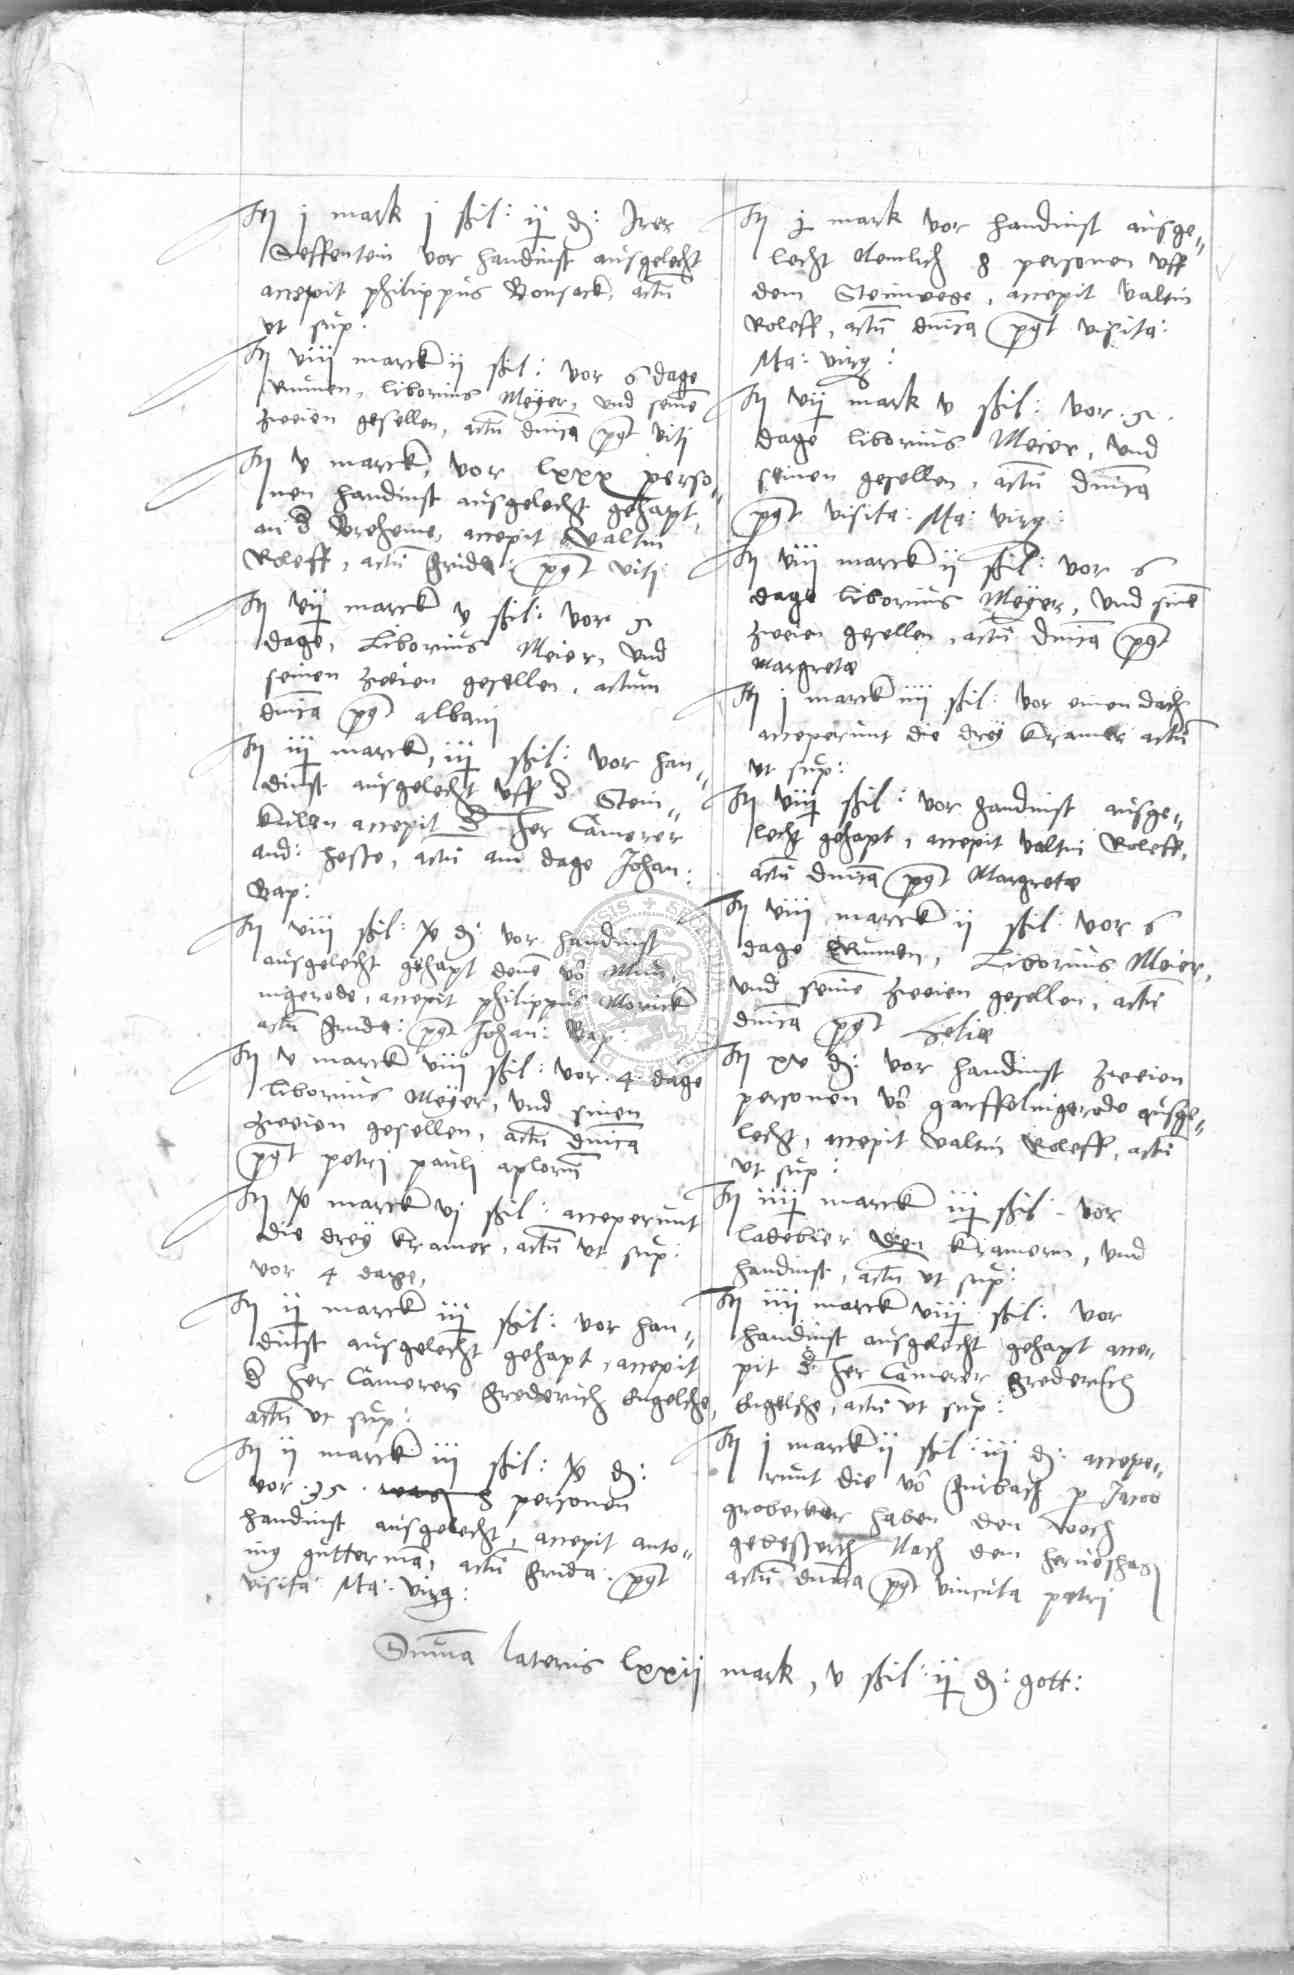 It j mark j ßil: ij d: Irer
Seffentein vor handinst ausgelecht
accepit philippus Bonsack, actum
ut sup:
It viii marck ii ßil: vor 6 dage
Liborius Meyer, und seine
zweien gesellen, actum dnica post viti
It v marck, vor lxxx perso-
nen handinst ausgelecht gehapt,
an d accepit Valtin
Roleff, actum frida: post viti:
It vij marck v ßil: vor 5
dage, Liborius Meier, und
seinen zweien gesellen, actum
dnica post albani
It iij marck, iij ßil: vor han-
dinst ausgelecht uff d Stein-
kulen accepit d her Camerer
and: hesse, actum am dage Johan:
Bap:
It viii ßil: x d: vor handinst
ausgelecht gehapt dene vo
nigerode, accepit philippus
actum frida: post Johan: Bap:
It v marck viii ßil: vor 4 dage
Liborius Meyer, und sinen
zweien gesellen, actum dnica
post petri pauli aplorum
It x marck vj ßil: acceperunt
die drey kramer, actum ut sup:
vor 4 dage,
It ij marck iij ßil: vor han-
dinst ausgelecht gehapt, accepit
d her Camerer frederich Engelche,
actum ut sup:
It ii marck iii ßil: x d:
vor 35 personen
handinst ausgelecht, accepit anto-
ing gutterman, actum frida: post
visita: Ma: virg:
It j mark vor handinst ausge-
lecht Nemlich 8 personen uff
dem Steinwege, accepit valtin
Roleff, actum dnica post visita:
Ma: virg:
It vij mark v ßil: vor 5
dage liborius Meier, und
seinen gesellen, actum dnica
post visita: Ma: virg:
It viii marck ij ßil: vor 6
dage liborius Meyer, und sine
zweien gesellen, actum dnica post
Margrete
It j marck iiii ßil: vor einen dach
acceperunt die drey kramer actum
ut sup:
It viij ßil: vor handinst ausge-
lecht gehapt, accepit Valtin Roleff,
actum dnica post Margrete
It viii marck ii ßil: vor 6
dage Liborius Meier,
und seine zweien gesellen, actum
dnica post
It xv d: vor handinst zweien
personen vo ausge-
lecht, accepit valtin Roleff, actum
ut sup:
It iiij marck iij ßil: vor
ladebier den kramern, und
handinst, actum ut sup:
It iiii marck viij ßil: vor
handinst ausgelecht gehapt acce-
pit d her Camerer frederich
Engelche, actum ut sup:
It j marck ii ßil: iij d: accepe-
runt die vo p Jacob
grobecker haben den woch
gebessert Nach dem
actum dnica post vincula petri
Summa lateris lxxii mark, v ßil: ij d: gott: